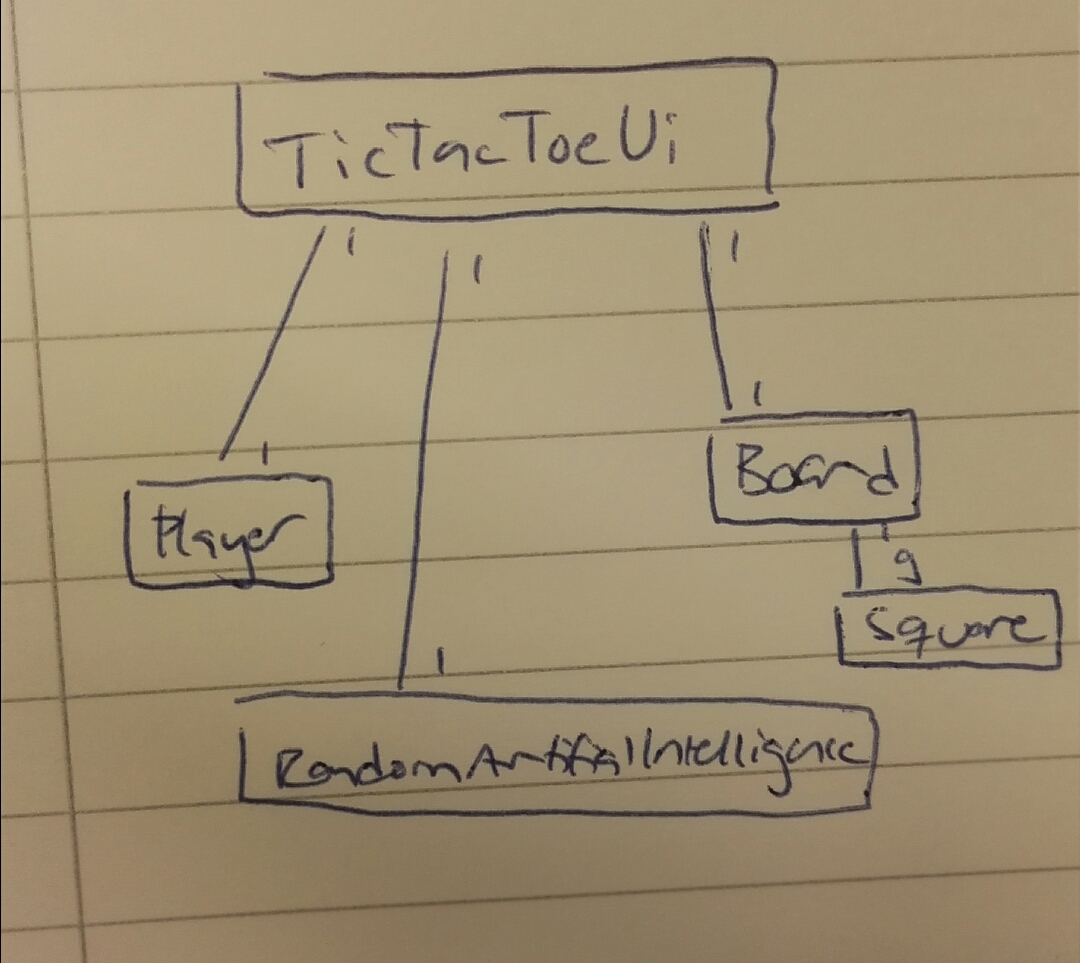 TicTacToeUi
1 1 1
1
1
Board
Player
1
9
Square
1
RandomArtifialIntelligence